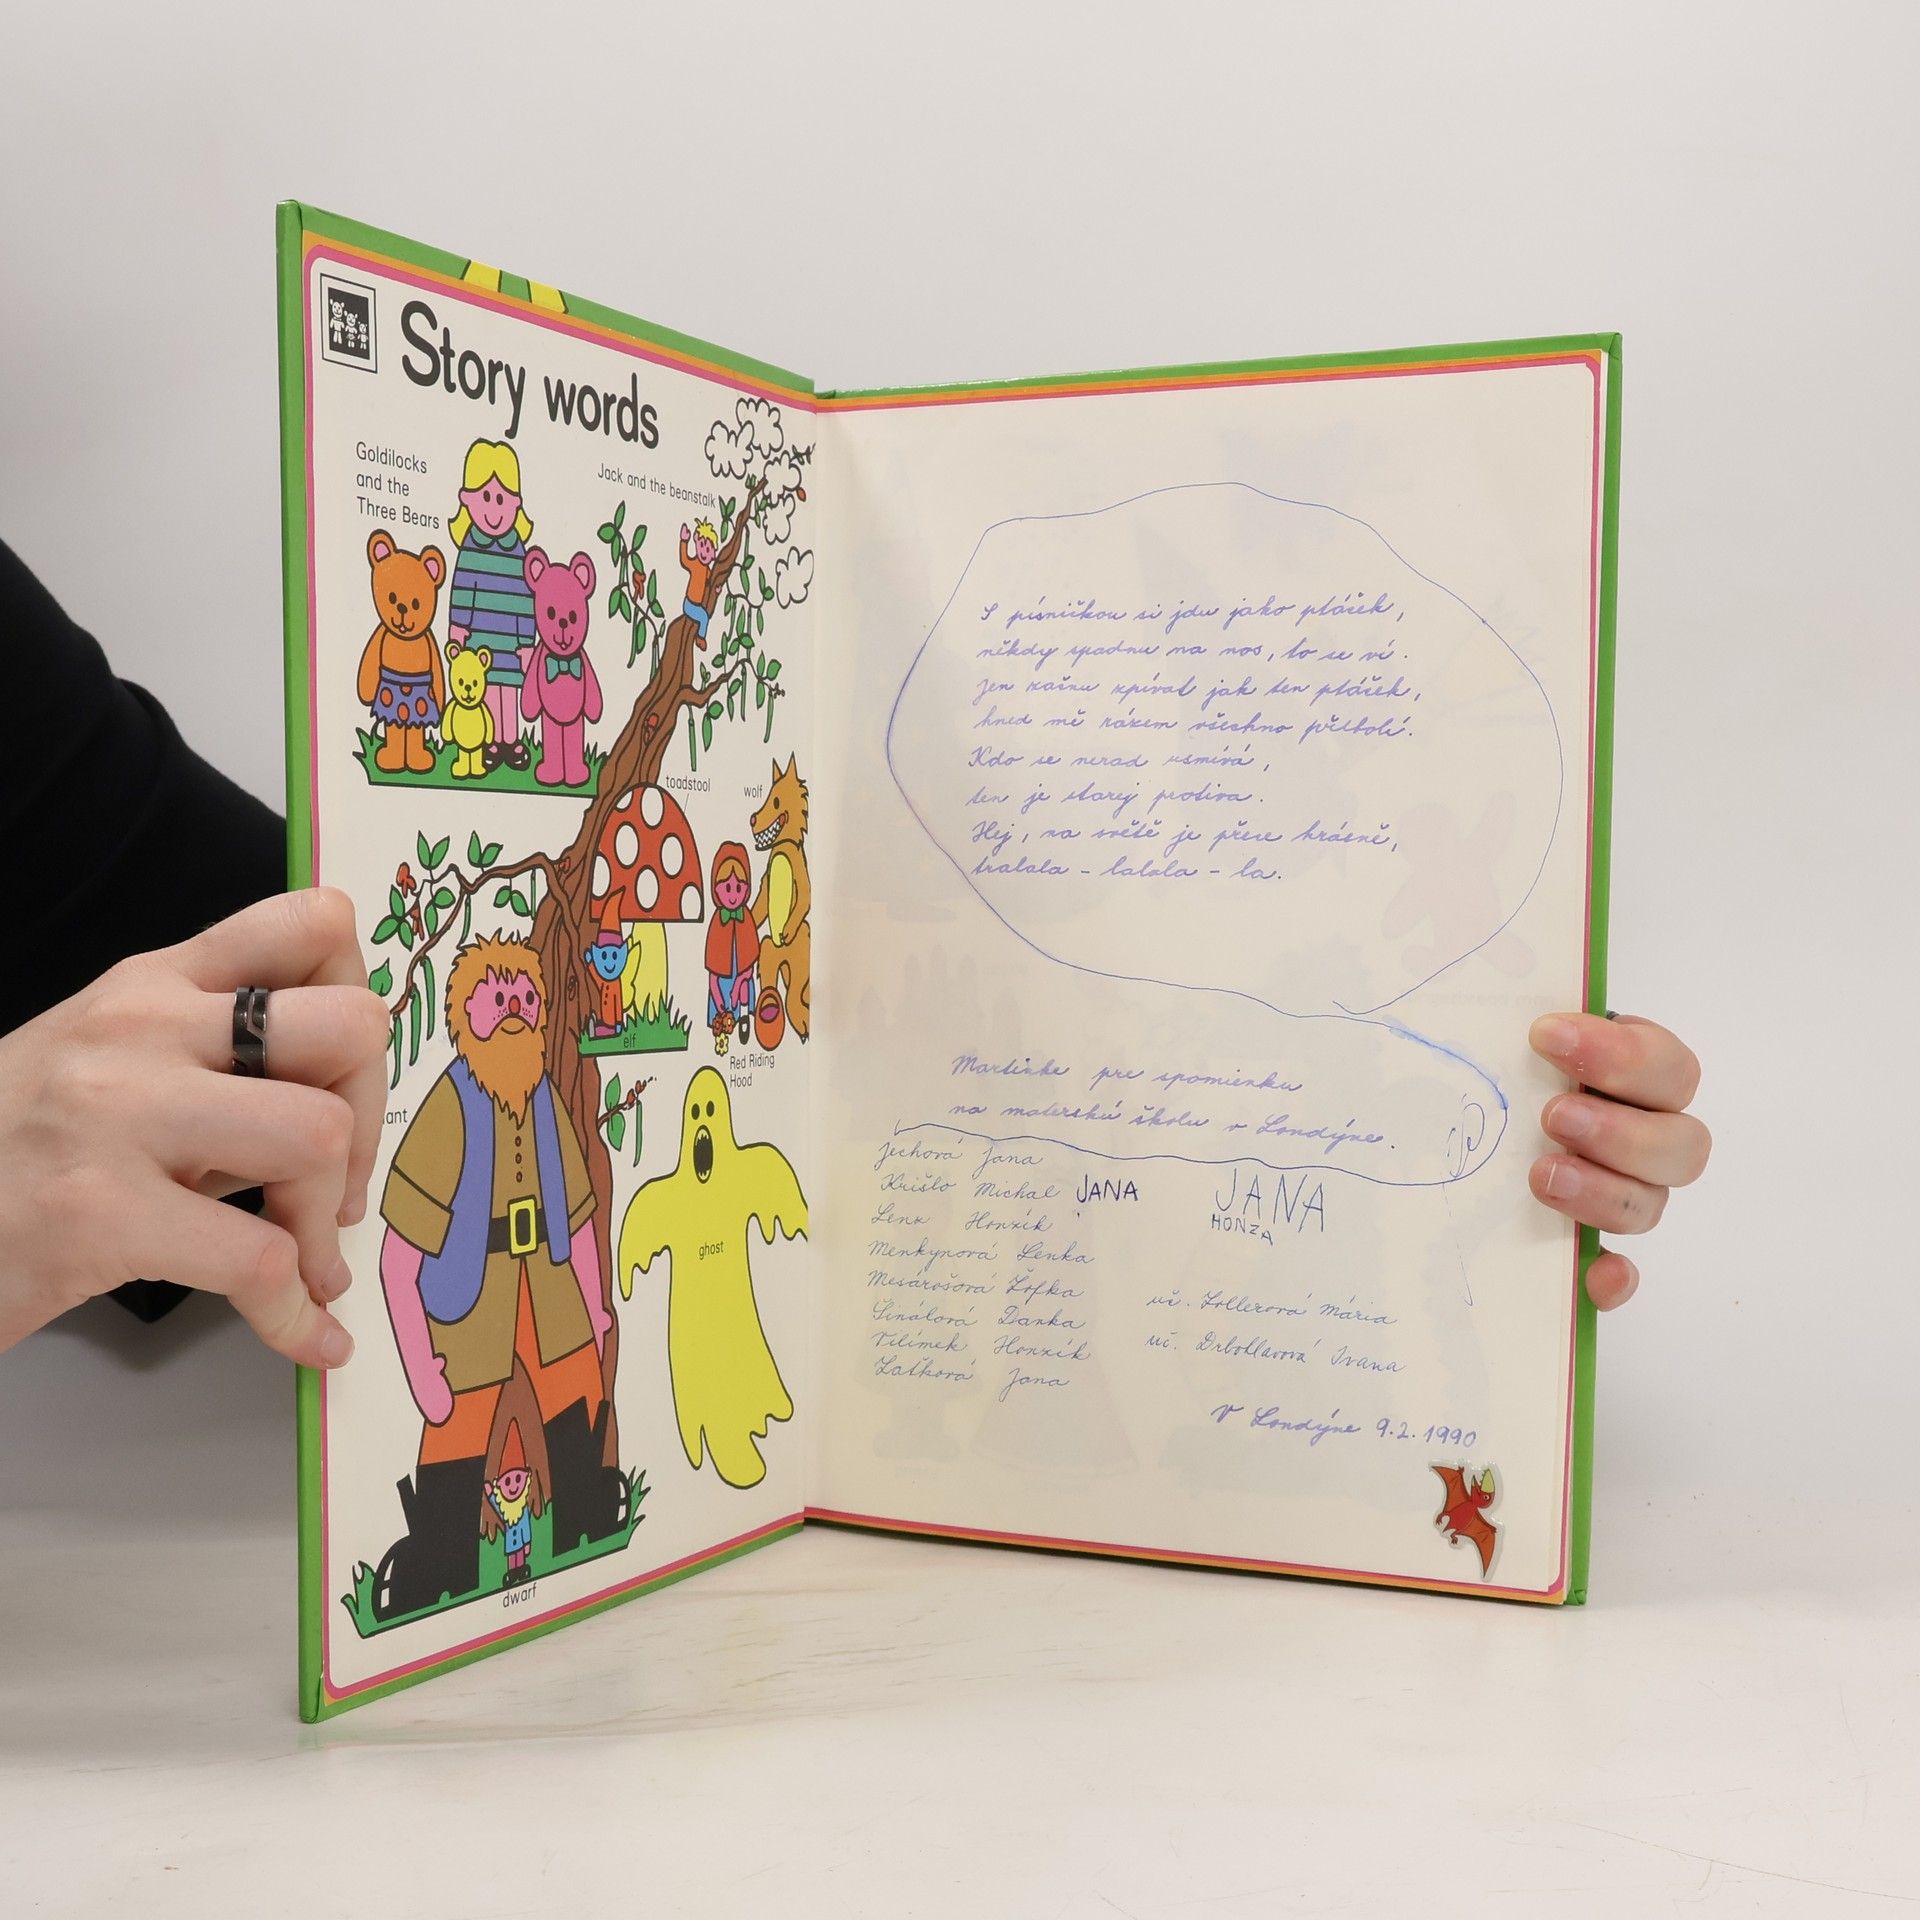 Story words
Goldilocks
and the
Three Bears
Jack and the beanstalk
toadstool
wolf
elf
Red Riding
Hood
iant
ghost
dwarf
S písničkou si jdu jako ptáček,
někdy spadnu na nos, to se ví.
Jen začnu zpívat jak ten ptáček,
hned mě rázem všechno přebolí.
Kdo se nerad usmívá,
ten je starej protiva.
Hej, na světě je přece krásně,
tralala - lalala - la.
Martinke pre spomienku
na materskú školu v Londýne.
Jechová Jana
Krišlo Michal JANA
JANA
HONZA
Lenz Honzík
Menkynová Lenka
Mesárošová Žofka
Šinálová Danka
Vilímek Honzík
Zaťková Jana
uč. Zollerová Mária
uč. Drbohlavová Ivana
V Londýne 9.2.1990